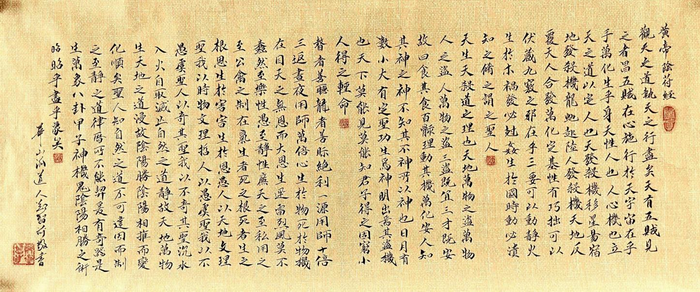 黃帝陰符經
觀天之道執天之行盡矣天有五賊見
之者昌五賊在心施行於天宇宙在乎
手萬化生乎身天性人也人心機也立
天之道以定人也天發殺機移星易宿
地發殺機龍蛇起陸人發殺機天地反
覆天人合發萬化定基性有巧拙可以
伏藏九竅之邪在乎三要可以動靜火
生於木禍發必尅姦生於國時動必潰
知之修之謂之聖人
天生天殺道之理也天地萬物之盜萬物
人之盜人萬物之盜三盜既宜三才既安
故曰食其食百骸理動其機萬化安人知
其神之神不知其不神所以神也日月有
數小大有定聖功生焉神明出焉其盜機
也天下莫能見莫能知君子得之固窮小
人得之輕命
瞽者善聽聾者善眎絕利一源用師十倍
三返晝夜用師萬倍心生於物死於物機
在目天之無恩而大恩生迅雷烈風莫不
蠢然至樂性愚至靜性廉天之至私用之
至公禽之制在氣生者死之根死者生之
根恩生於害害生於恩愚人以天地文理
聖我以時物文理哲人以愚虞聖我以不
愚虞聖人以奇其聖我以不奇其聖沉水
入火自取滅亡自然之道靜故天地萬物
生天地之道浸故陰陽勝陰陽相推而變
化順矣聖人知自然之道不可違因而制
之至靜之道律曆所不能契爰有奇器是
生萬象八卦甲子神機鬼陰陽相勝之術
昭昭乎盡乎象矣
山 道人 書